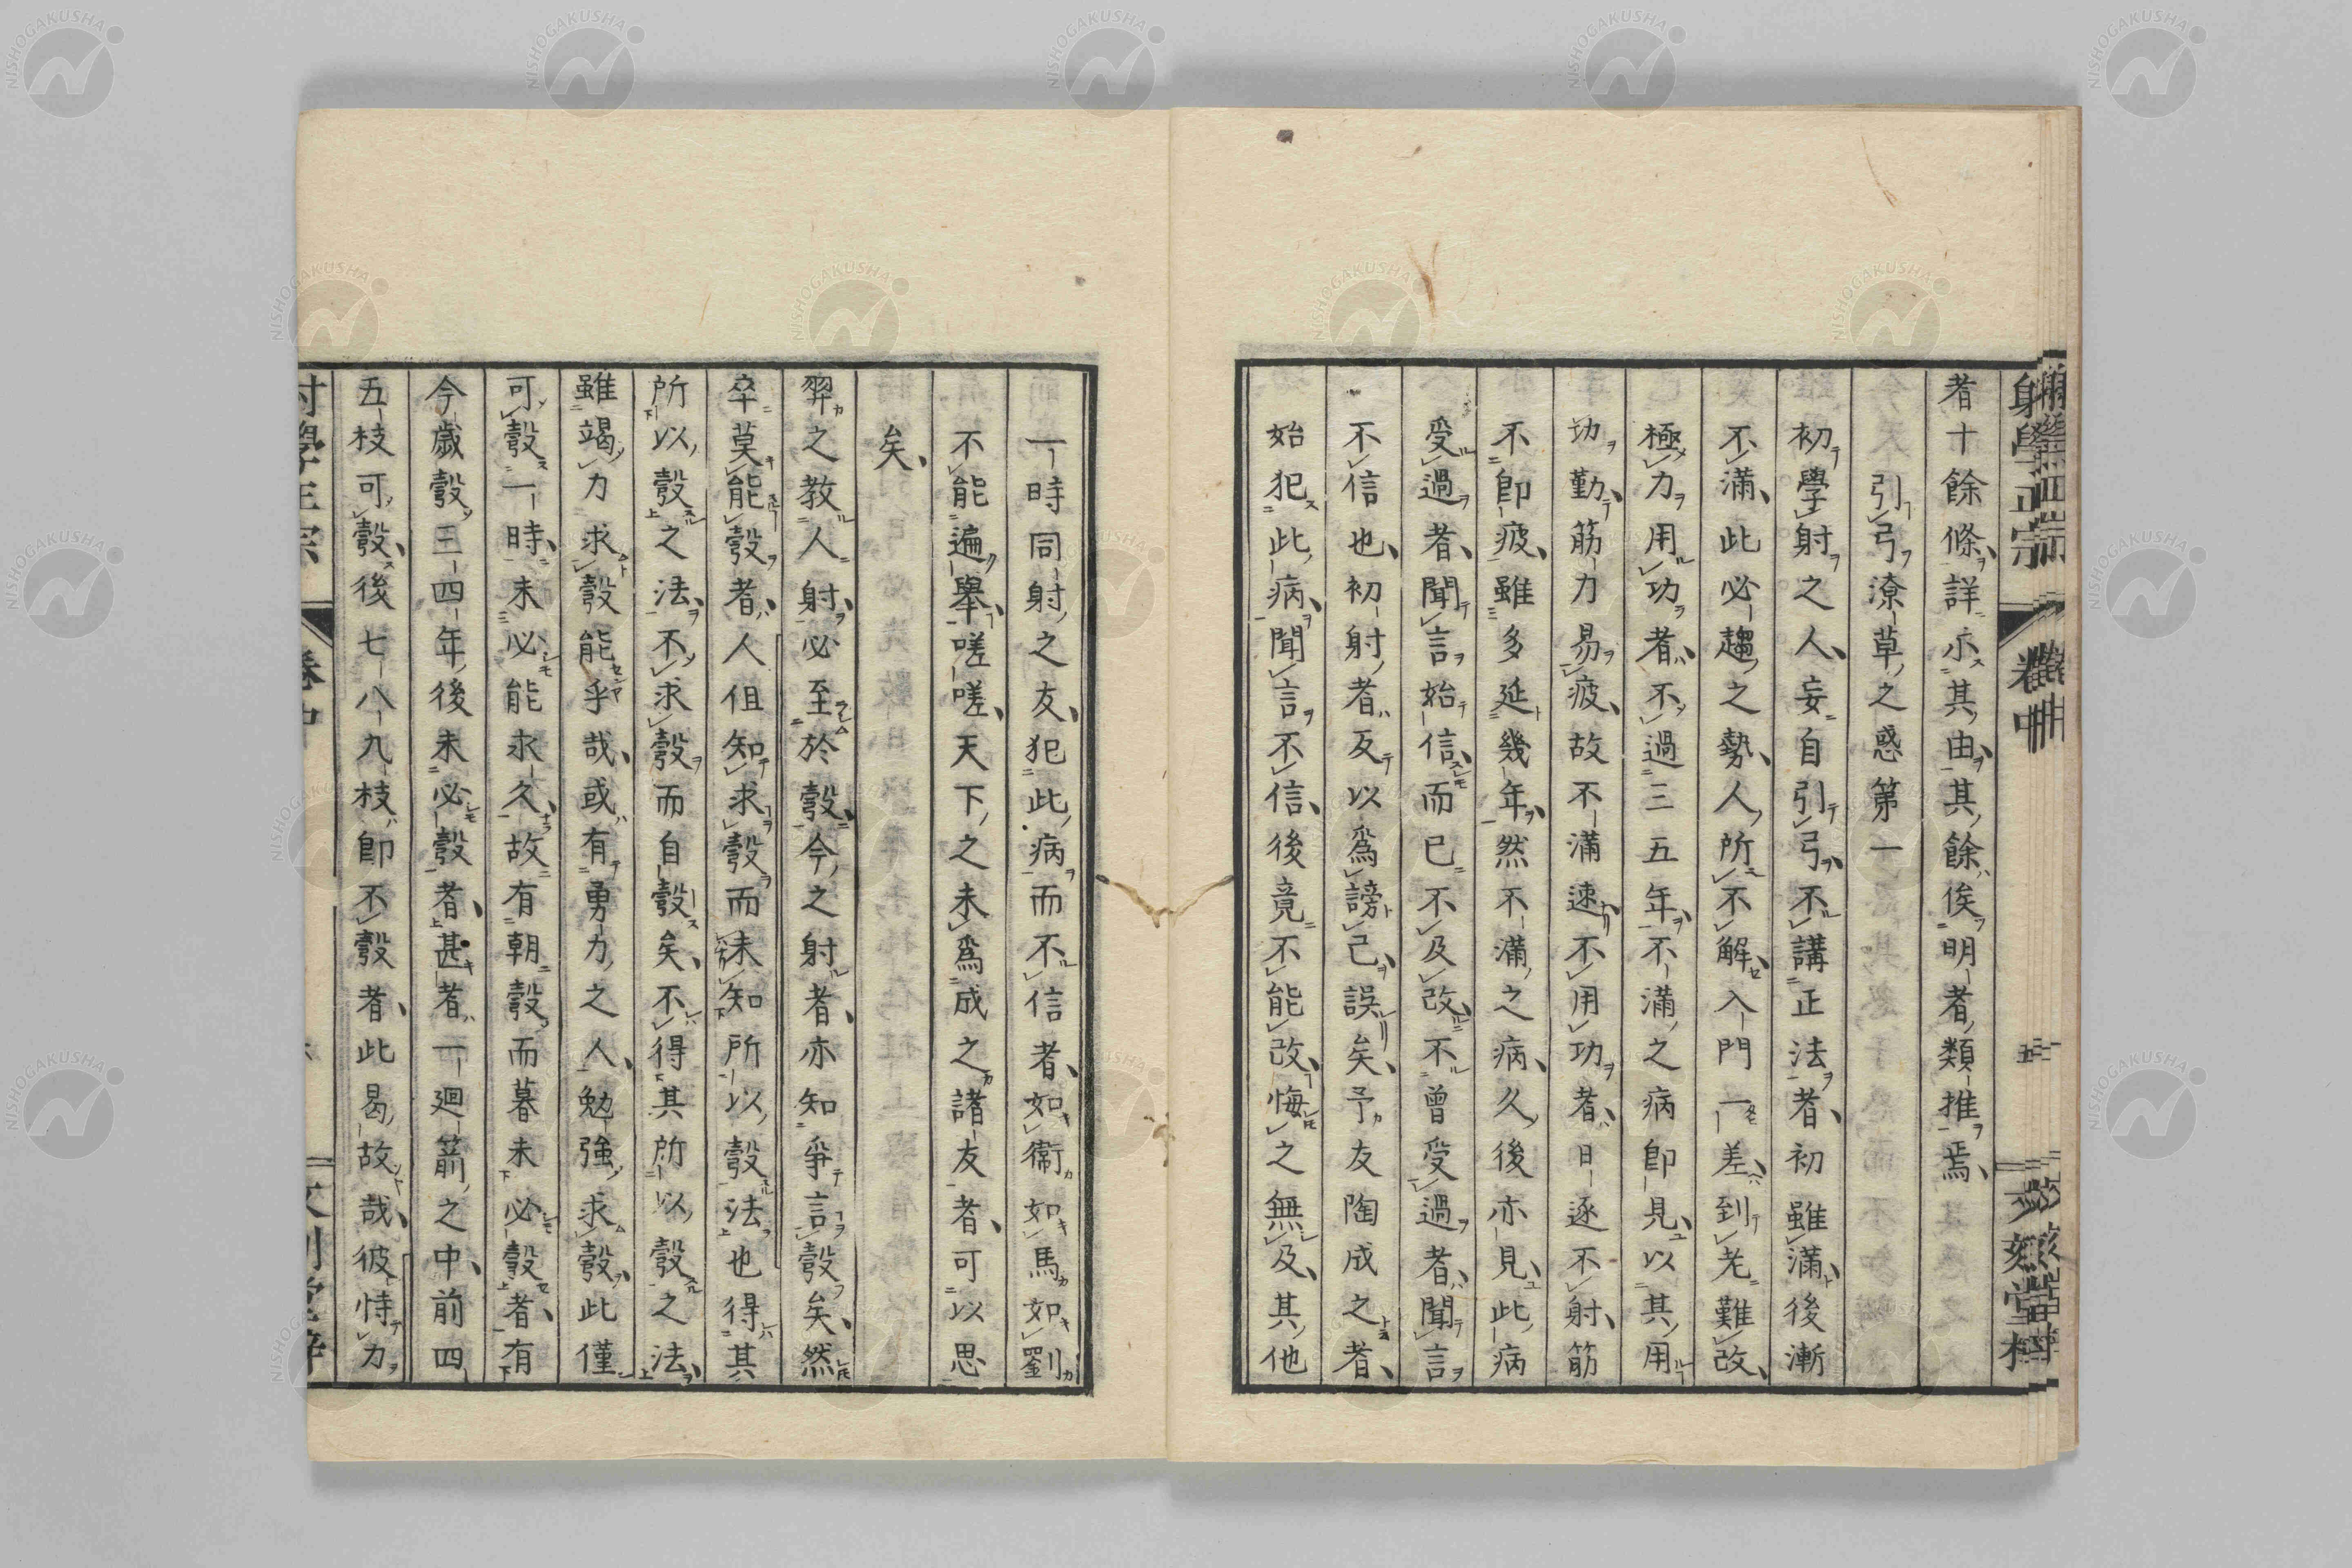 者十餘條詳示其由其餘俟明者類推焉
引弓潦草之惑第一
初學射之人妄自引弓不講正法者初雖滿後漸
不滿此必趨之勢人所不解入門一差到老難改
極力用功者不過三五年不滿之病卽見以其用
功勤筋力易疲故不滿速不用功者日逐不射筋
不卽疲雖多延幾年然不滿之病久後亦見此病
受過者聞言始信而已不及改不曾受過者聞言
不信也初射者反以爲謗己誤矣予友陶成之者
始犯此病聞言不信後竟不能改悔之無及其他
一時同射之友犯此病而不信者如衞如馬如劉
不能遍舉嗟嗟天下之未爲成之諸友者可以思
矣
羿之教人射必至於彀今之射者亦知爭言彀矣然
卒莫能彀者人但知求彀而未知所以彀法也得其
所以彀之法不求彀而自彀矣不得其所以彀之法
雖竭力求彀能乎哉或有勇力之人勉強求彀此僅
可彀一時未必能永久故有朝彀而暮未必彀者有
今歲彀三四年後未必彀者甚者一廻箭之中前四
五枝可彀後七八九枝卽不彀者此曷故哉彼恃力
射學正宗
卷中
NISHOGAKUSHA